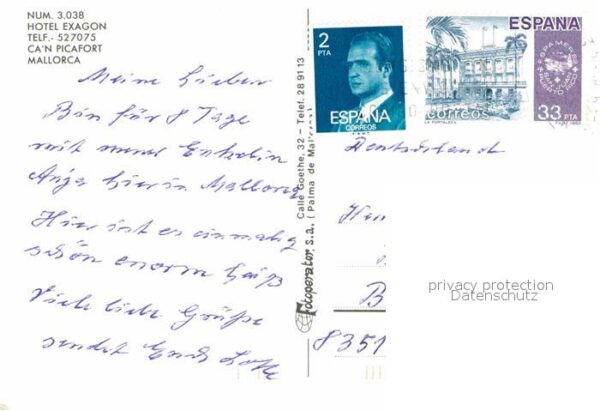 NUM. 3.038
HOTEL EXAGON
TELF.- 527075
CA'N PICAFORT
MALLORCA
Meine Lieben
Bin für 8 Tage
mit meiner Enkelin
Anja hier in Mallorca
Hier ist es einmalig
schön enorm heiß
Viele liebe Grüße
sendet Euch Lotte
Fotoperator, s.a.
Calle Goethe, 32 – Telef. 28 91 13
(Palma de Mallorca)
2
PTA
ESPAÑA
CORREOS
ESPAÑA
correos
LA FORTALEZA
33 PTA
ESPAMER
Deutschland
B
8351
privacy protection
Datenschutz